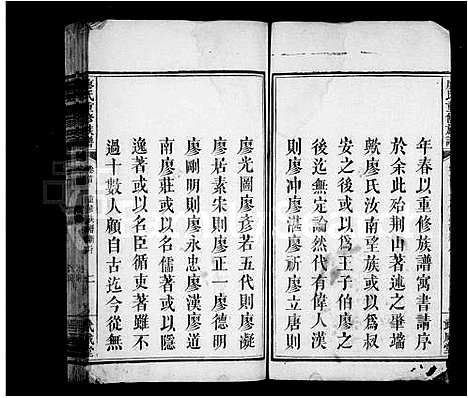 年春以重修族譜寓書請序
於余此殆荆山著述之肇端
歟廖氏汝南望族或以爲叔
安之後或以爲王子伯廖之
迄無定論然代有偉人漢
則廖冲廖湛廖祈廖立唐則
廖光圖廖彥若五代則廖凝
廖居素宋則廖正一廖德明
廖剛明則廖永忠廖漢廖道
南廖莊或以名儒著或以隱
逸著或以名臣循吏著雖不
過十數人顧自古迄今從無
廖氏重修族譜
卷首